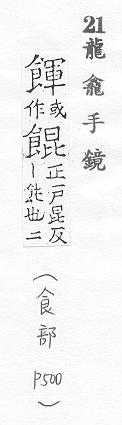 21龍龕手鏡
餫或作餛正戶昆反丨飩也二
（食部 P500）